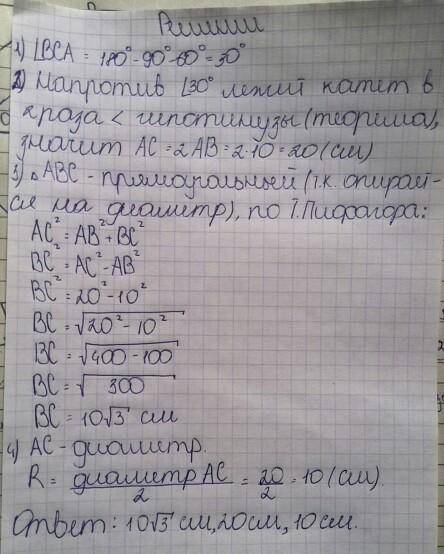 Решение
1) ∠BCA = 180°-90°-60°=30°
2) Напротив ∠30° лежит катет в
2 раза < гипотинузы (теорема),
значит AC = 2AB = 2·10 = 20 (см)
3) △ABC - прямоугольный (т.к. опирает-
ся на диаметр), по Т.Пифагора:
AC² = AB² + BC²
BC² = AC² - AB²
BC² = 20² - 10²
BC = √20² - 10²
BC = √400 - 100
BC = √300
BC = 10√3 см
4) AC - диаметр.
R = диаметр AC/2 = 20/2 = 10 (см).
Ответ: 10√3 см, 20см, 10см.